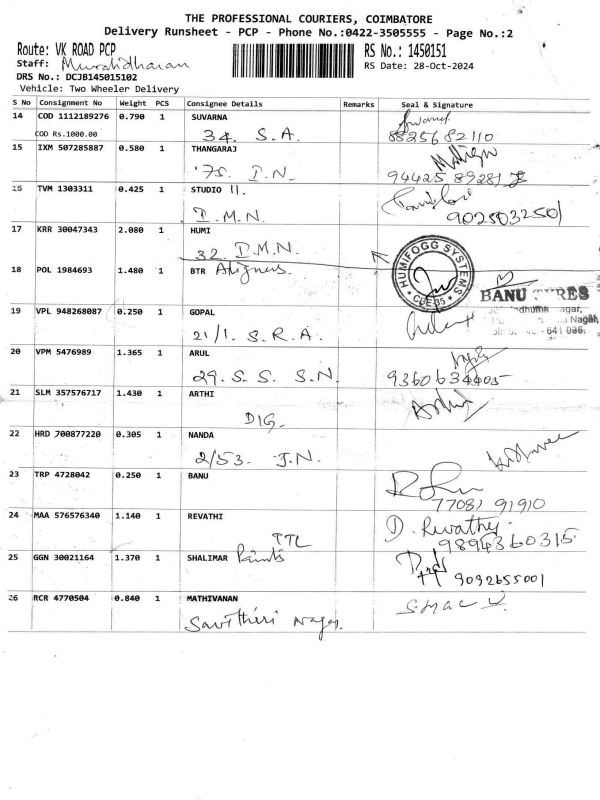 THE PROFESSIONAL COURIERS, COIMBATORE
Delivery Runsheet - PCP - Phone No.:0422-3505555 - Page No.:2
Route: VK ROAD PCP RS No.: 1450151
Staff: Muralidharan RS Date: 28-Oct-2024
DRS No.: DCJB145015102
Vehicle: Two Wheeler Delivery
S No Consignment No Weight PCS Consignee Details Remarks Seal & Signature
14 COD 1112189276 0.790 1 SUVARNA
COD Rs.1000.00 34. S.A. 8825682110
15 IXM 507285887 0.580 1 THANGARAJ
'75. I.N. 9442589281
16 TVM 1303311 0.425 1 STUDIO 11.
D.M.N. 9025032501
17 KRR 30047343 2.080 1 HUMI
32. D.M.N. HUMIFOGG SYSTEMS
18 POL 1984693 1.480 1 BTR Aligners. CBE35 BANU TYRES
19 VPL 948268087 0.250 1 GOPAL
21/1. S.R.A. - 641 035.
20 VPM 5476989 1.365 1 ARUL
29. S. S. S.N. 9360634405
21 SLM 357576717 1.430 1 ARTHI
DIG.
22 HRD 700877220 0.305 1 NANDA
2/53. J.N.
23 TRP 4728042 0.250 1 BANU
77081 91910
24 MAA 576576340 1.140 1 REVATHI D. Revathy.
TTL 9894360315
25 GGN 30021164 1.370 1 SHALIMAR Paints
9092655001
26 RCR 4770504 0.840 1 MATHIVANAN
Savitheri Nagar.